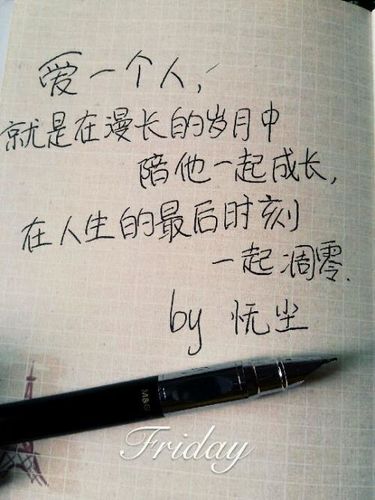 爱一个人,
就是在漫长的岁月中
陪他一起成长,
在人生的最后时刻
一起凋零.
by 恹尘
M&G
Friday